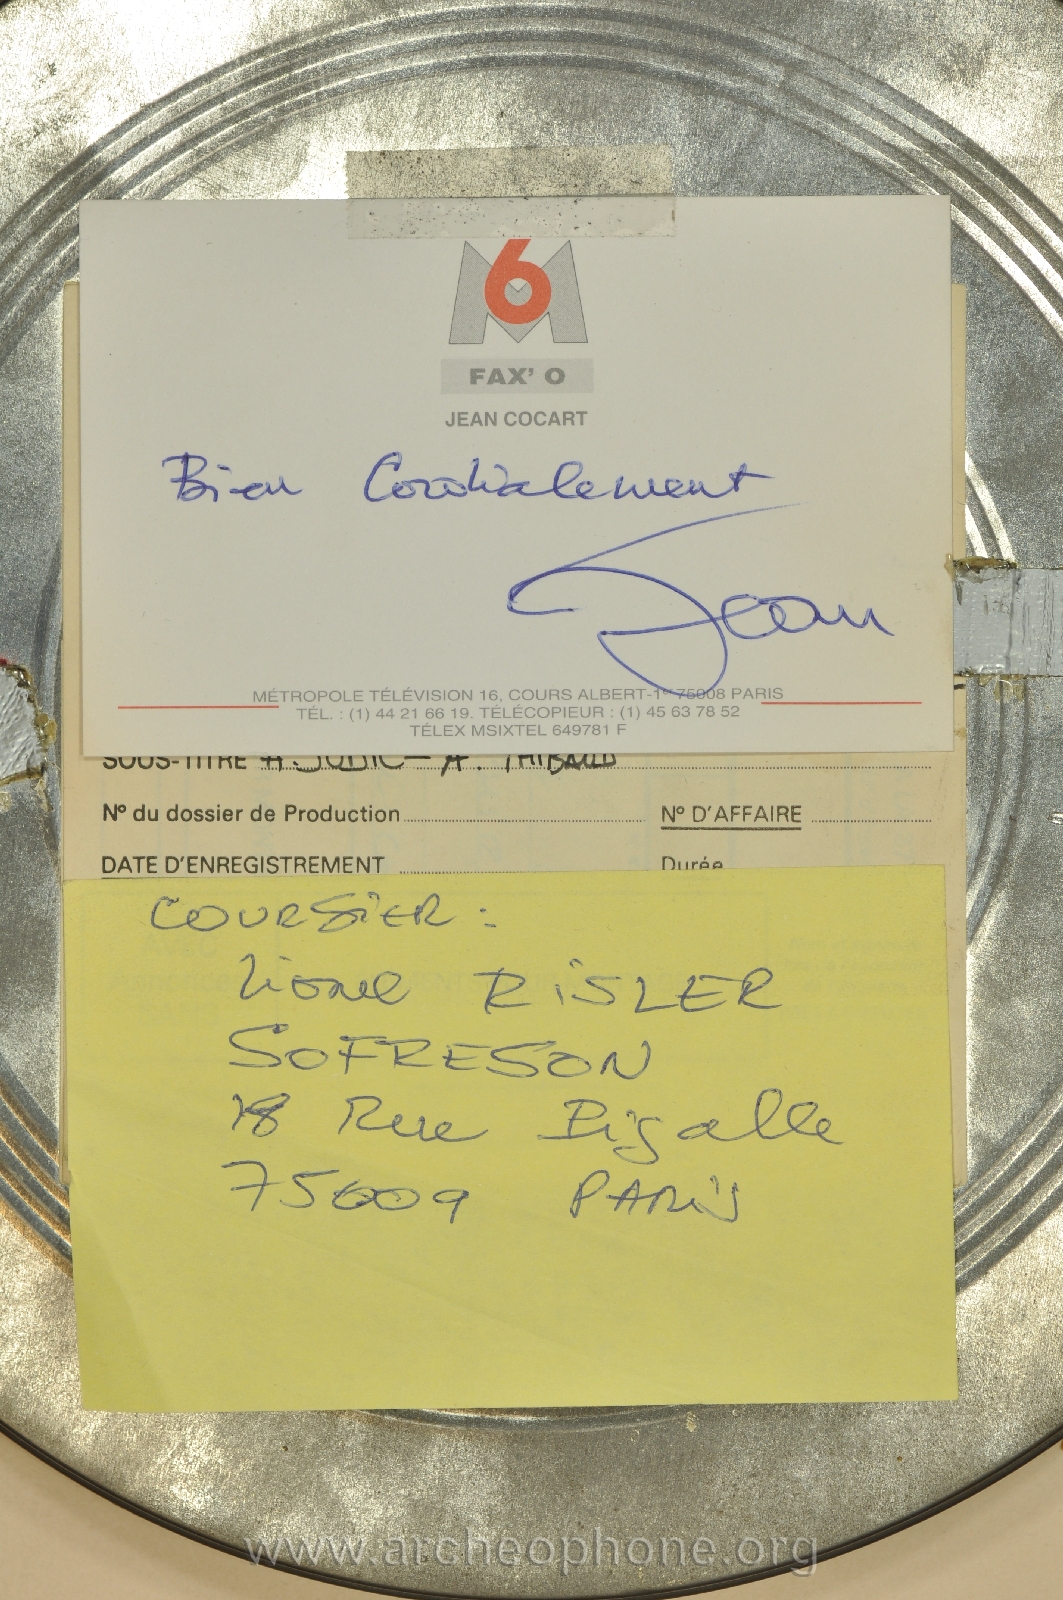 M6
FAX' O
JEAN COCART
Bien Cordialement
Jean
MÉTROPOLE TÉLÉVISION 16, COURS ALBERT-1er 75008 PARIS
TÉL. : (1) 44 21 66 19. TÉLÉCOPIEUR : (1) 45 63 78 52
TÉLEX MSIXTEL 649781 F
SOUS-TITRE A. JUDIC - A. THIBAUD
Nº du dossier de Production Nº D'AFFAIRE
DATE D'ENREGISTREMENT Durée
COURSIER :
Lionel RISLER
SOFRESON
18 Rue Pigalle
75009 PARIS
www.archeophone.org